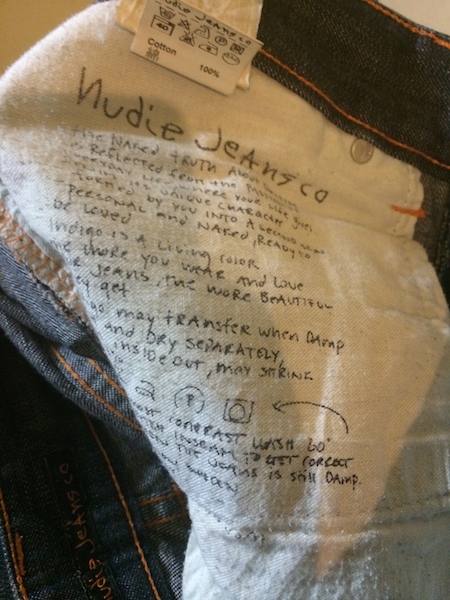 Nudie Jeans co
Cotton
棉
100%
Nudie Jeans co
The NAKED TRUTH ABOUT
is REFLECTED FROM the
YOUR LIFE STYLE
UNIQUE CHARACTER
FORMED BY YOU INTO A SECOND SKIN
PERSONAL and NAKED, READY TO
BE LOVED
Indigo is A LIVING COLOR
THE MORE YOU WEAR AND LOVE
JEANS, THE MORE BEAUTIFUL
get
may TRANSFER WHEN DAMP
AND DRY SEPARATELY,
INSIDE OUT, MAY SHRINK
P
CONTRAST WASH 60°
INSEAM TO GET CORRECT
THE JEANS is still DAMP.
Nudie Jeans co